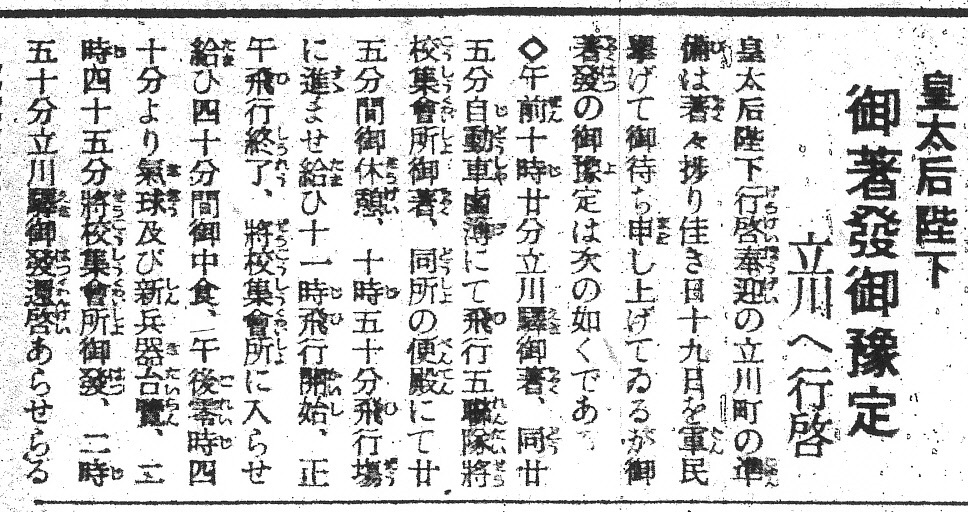 皇太后陛下
御著發御豫定
立川へ行啓
皇太后陛下行啓奉迎の立川町の準
備は著々捗り佳き日十九日を軍民
擧げて御待ち申し上げてゐるが御
著發の御豫定は次の如くであ
◇午前十時廿分立川驛御著、同廿
五分自動車鹵簿にて飛行五聯隊將
校集會所御著、同所の便殿にて廿
五分間御休憩、十時五十分飛行場
に進ませ給ひ十一時飛行開始、正
午飛行終了、將校集會所に入らせ
給ひ四十分間御中食、午後零時四
十分より氣球及び新兵器台覽、二
時四十五分將校集會所御發、二時
五十分立川驛御發還啓あらせらる